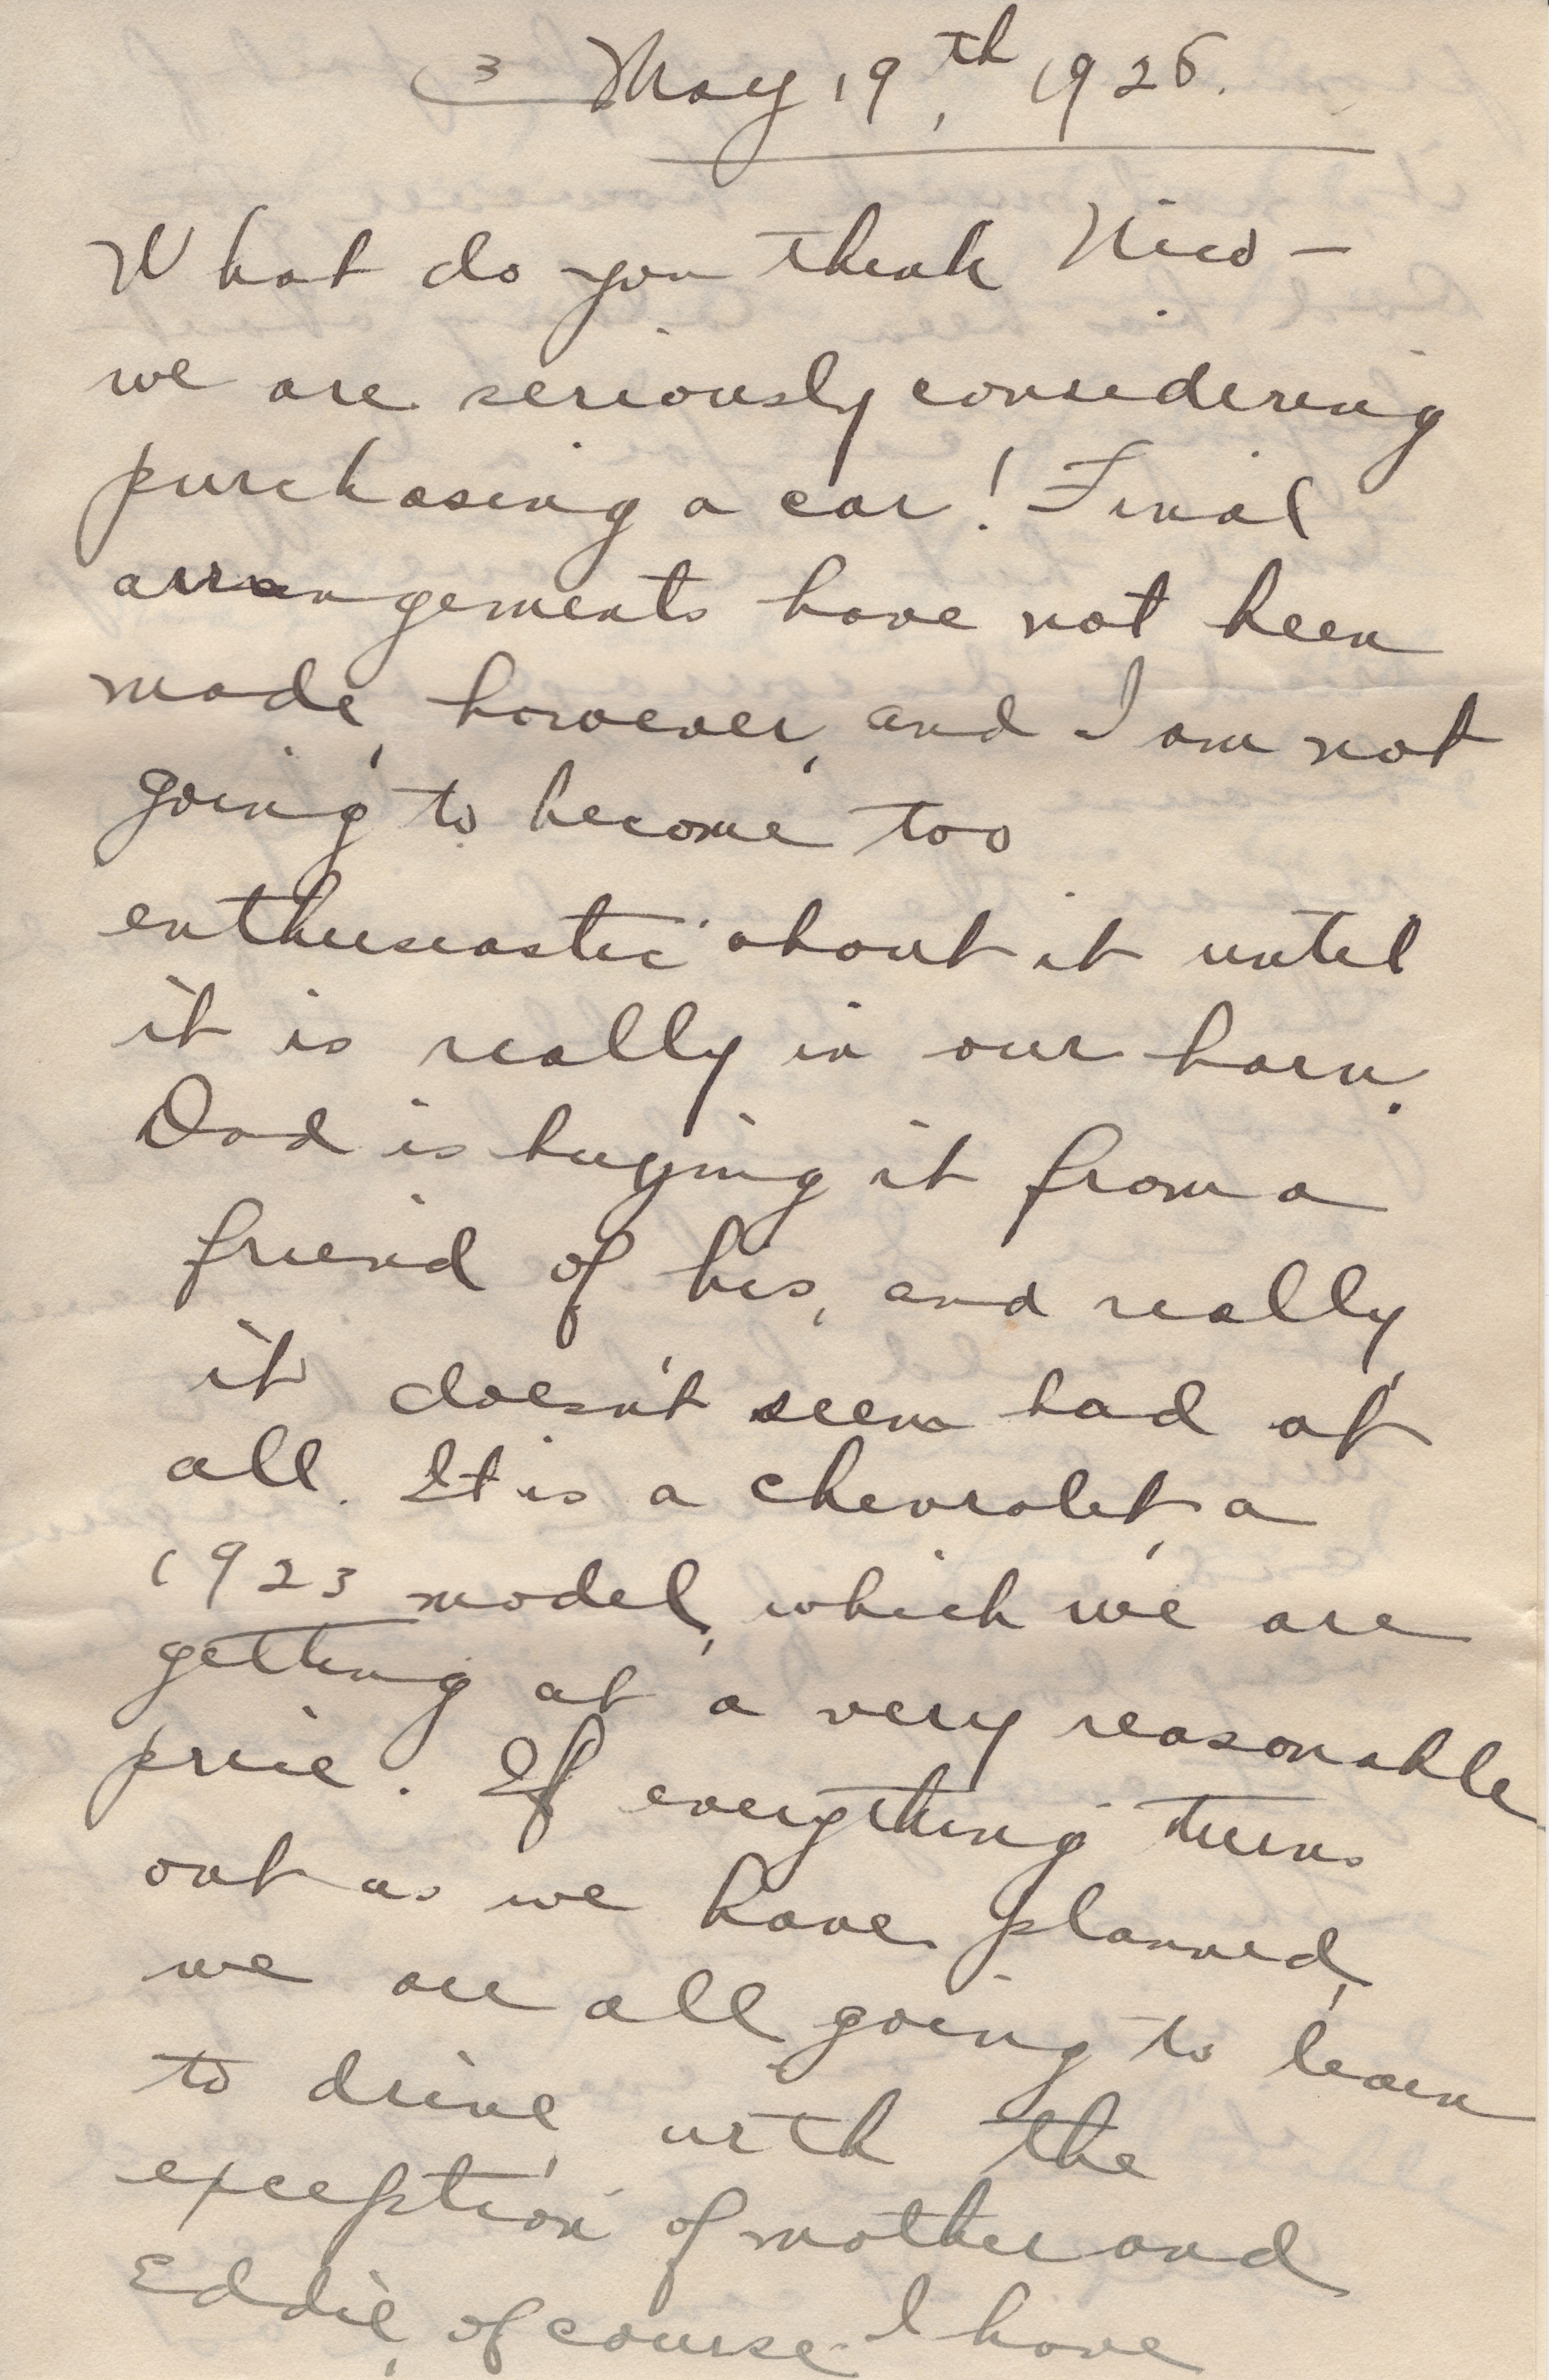 3 May 19th, 1925.
What do you think Nico -
we are seriously considering
purchasing a car! Final
arrangements have not been
made, however, and I am not
going to become too
enthusiastic about it until
it is really in our barn.
Dad is buying it from a
friend of his, and really,
it doesn't seem bad at
all. It is a Chevrolet, a
1923 model, which we are
getting at a very reasonable
price. If everything turns
out as we have planned,
we are all going to learn
to drive, with the
exception of mother and
Eddie, of course. I have